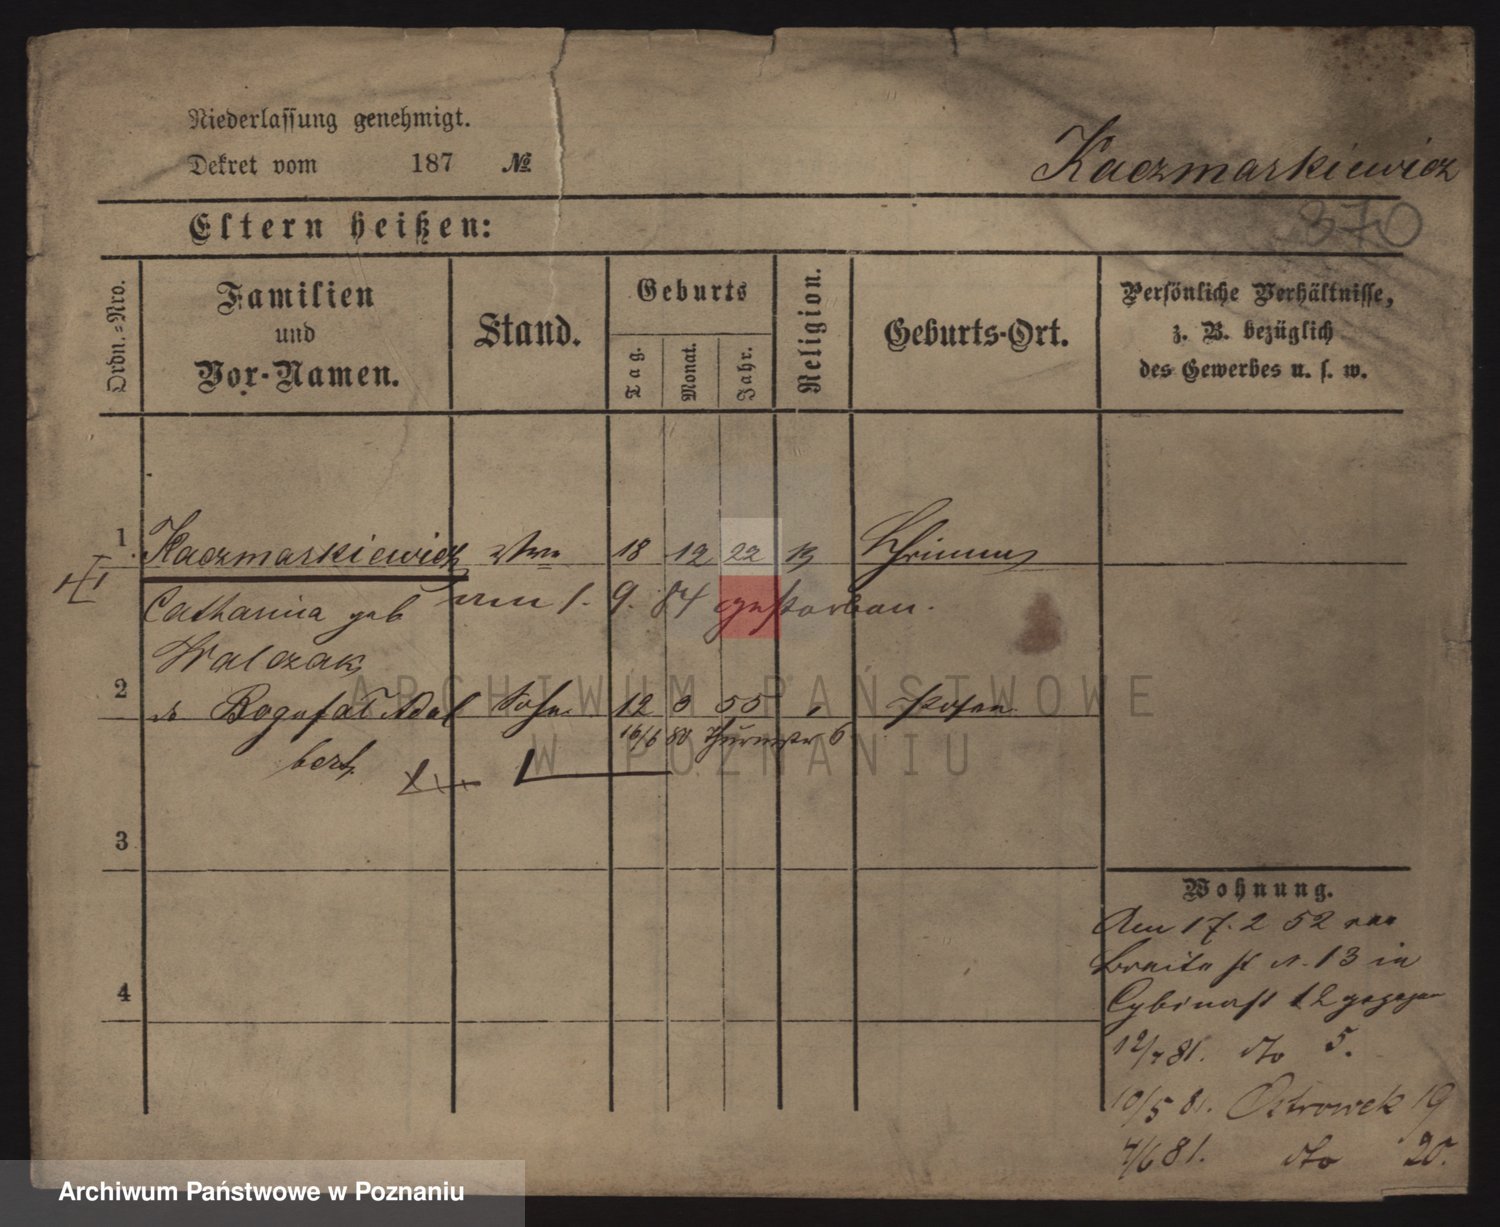 Niederlassung genehmigt.
Dekret vom 187 №
Kaczmarkiewicz
370
Eltern heißen:
Ordn.-Nro.
Familien
und
Vor-Namen.
Stand.
Geburts
Tag.
Monat.
Jahr.
Religion.
Geburts-Ort.
Persönliche Verhältnisse,
z. B. bezüglich
des Gewerbes u. s. w.
1 Kaczmarkiewicz Wwe 18 12 22 Schrimm
Catharina geb am 1. 9. 84 gestorben.
Walczak
2 do Bogufat Adal Sohn 12 3 55 Posen
bert 16/6 80 Thurmstr 6
3
4
Wohnung.
Am 17. 2 52 von
Breite st N. 13 in
Cybinast 12 gezogen
12/4 81. dto 5.
10/5 81. Ostrowek 19
4/6 81. dto 20.
ARCHIWUM PAŃSTWOWE
W POZNANIU
Archiwum Państwowe w Poznaniu